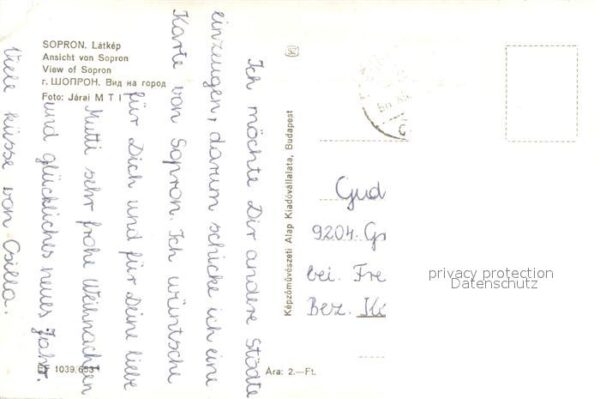 SOPRON. Látkép
Ansicht von Sopron
View of Sopron
г. ШОПРОН. Вид на город
Foto: Járai M T I
Ich möchte Dir andere Städte
einzugen, darum schicke ich eine
Karte von Sopron. Ich wüntsche
für Dich und für Deine liebe
Mutti sehr frohe Weihnachten
und glückliches neues Jahr.
Viele küsse von Csilla.
Képzőművészeti Alap Kiadóvállalata, Budapest
Gud
9204 Gr
bei. Fre
Bez.
privacy protection
Datenschutz
Ára: 2.—Ft.